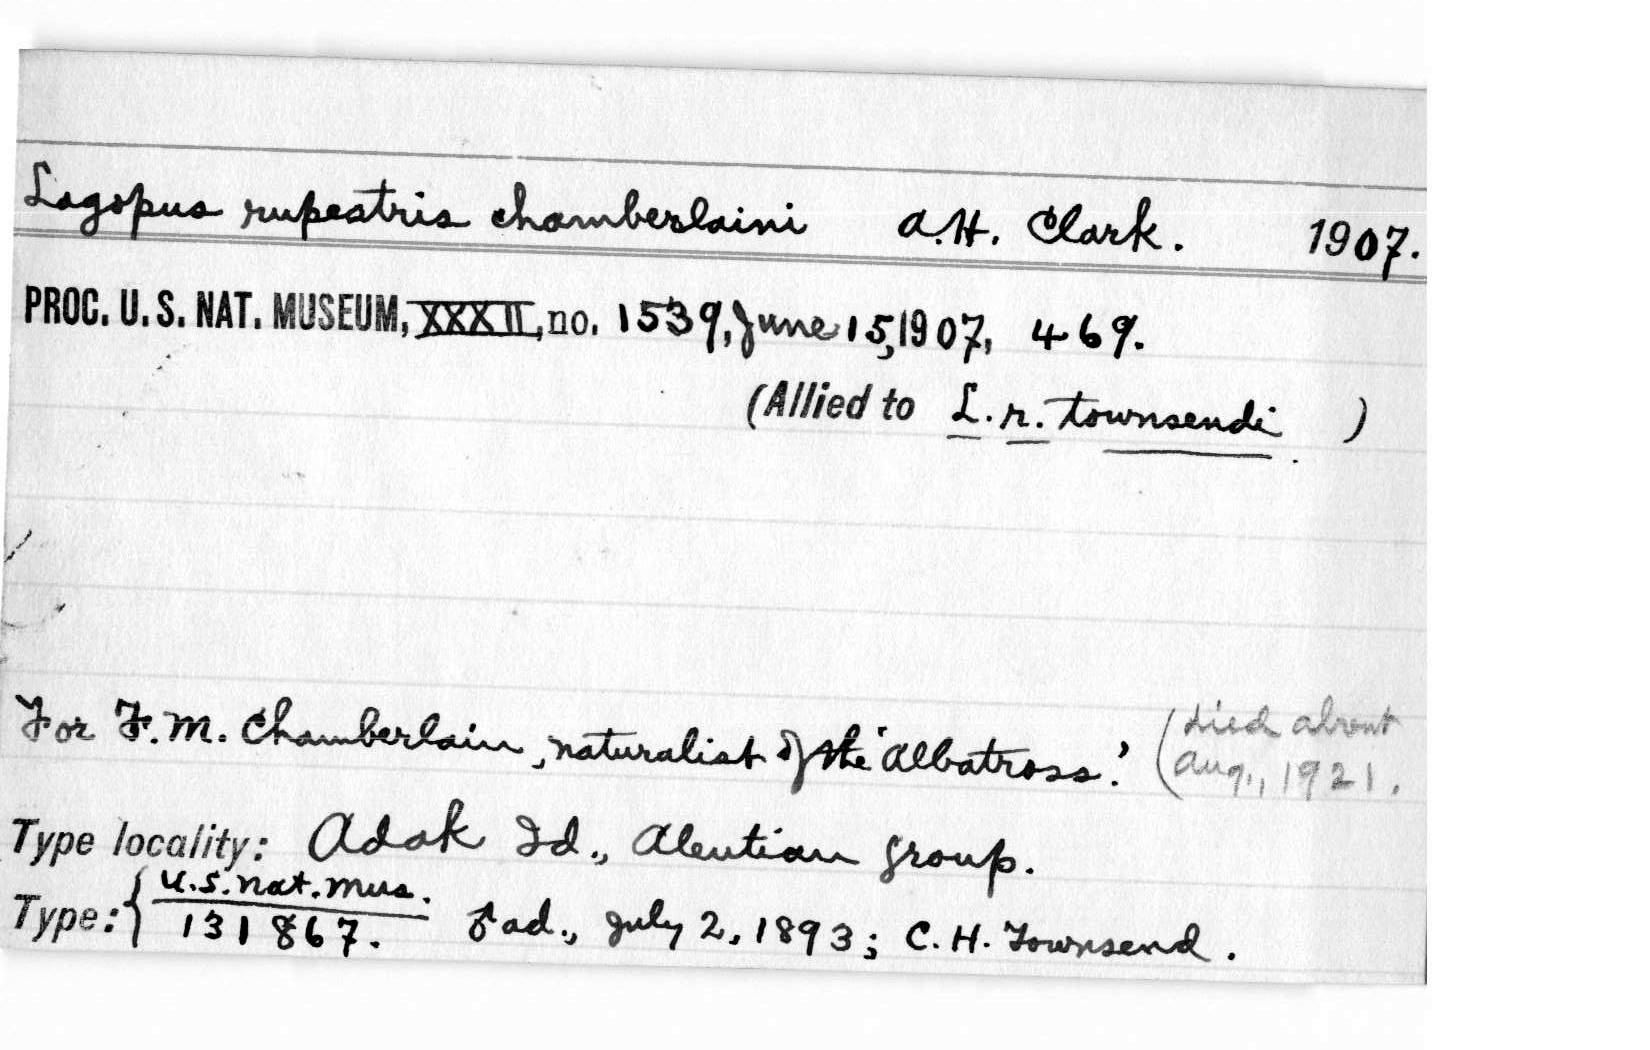 Lagopus rupestris chamberlaini A.H. Clark. 1907.
PROC. U.S. NAT. MUSEUM, XXXII, no. 1539, June 15, 1907, 469.
(Allied to L. r. townsendi )
For F. M. Chamberlain, naturalist of the 'Albatross.' (died about
Aug., 1921.
Type locality: Adak Id., Aleutian group.
Type: { U.S. Nat. Mus.
131867. ♂ ad., July 2, 1893; C. H. Townsend.